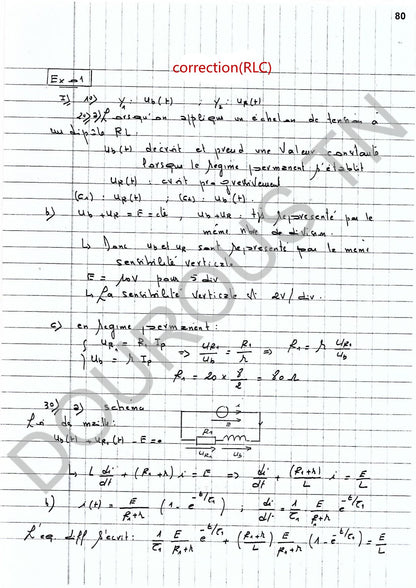 80
correction(RLC)
Ex n°1
I) 1°) Y1 : ub(t) ; Y2 : uR(t)
2°) a) Lorsqu'on applique un échelon de tension à
un dipôle RL.
ub(t) décroit et prend une valeur constante
lorsque le régime permanent s'établit
uR(t) : croit progressivement
(C1) : uR(t) ; (C2) : ub(t).
b) ub + uR = E = cte , ub + uR : tjs représenté par le
même nbre de division.
↳ Donc ub et uR sont représenté par le même
sensibilité verticale.
E = 10V pour 5 div
↳ La sensibilité verticale 2V/div.
c) en régime permanent :
{ uR1 = R1 Ip
{ ub = r Ip ⇒ uR1/ub = R1/r ⇒ R1 = r uR1/ub
R1 = 20 × 8/2 = 80 Ω
3°) a) schema
Loi de maille :
ub(t) + uR1(t) - E = 0
R1
uR1 ub
↳ L di/dt + (R1+r) i = E ⇒ di/dt + (R1+r)/L i = E/L
b) i(t) = E/(R1+r) (1 - e^(-t/τ1)) ; di/dt = 1/τ1 E/(R1+r) e^(-t/τ1)
L'eq diff s'écrit : 1/τ1 E/(R1+r) e^(-t/τ1) + (R1+r)/L E/(R1+r) (1 - e^(-t/τ1)) = E/L
DOUROUS TN